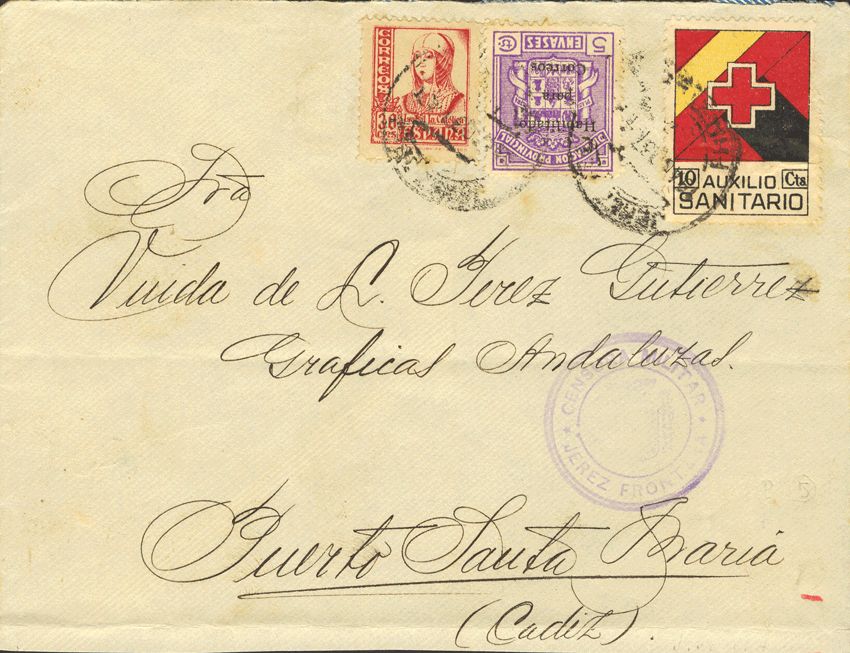 CORREOS
30
cts
Isabel la Católica
ESPAÑA
5 cts
ENVASES
Habilitado
para
Correos
PROVINCIAL
10 Cts
AUXILIO
SANITARIO
Sra
Vuida de L. Perez Gutierrez
Graficas Andaluzas.
CENSURA MILITAR
JEREZ FRONTERA
Puerto Santa Maria
(Cadiz).
5